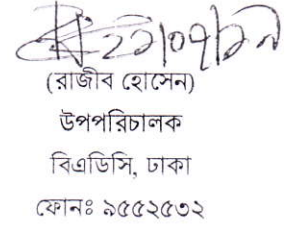 ২১/০৭/১৯
(রাজীব হোসেন)
উপপরিচালক
বিএডিসি, ঢাকা
ফোনঃ ৯৫৫২৫৩২